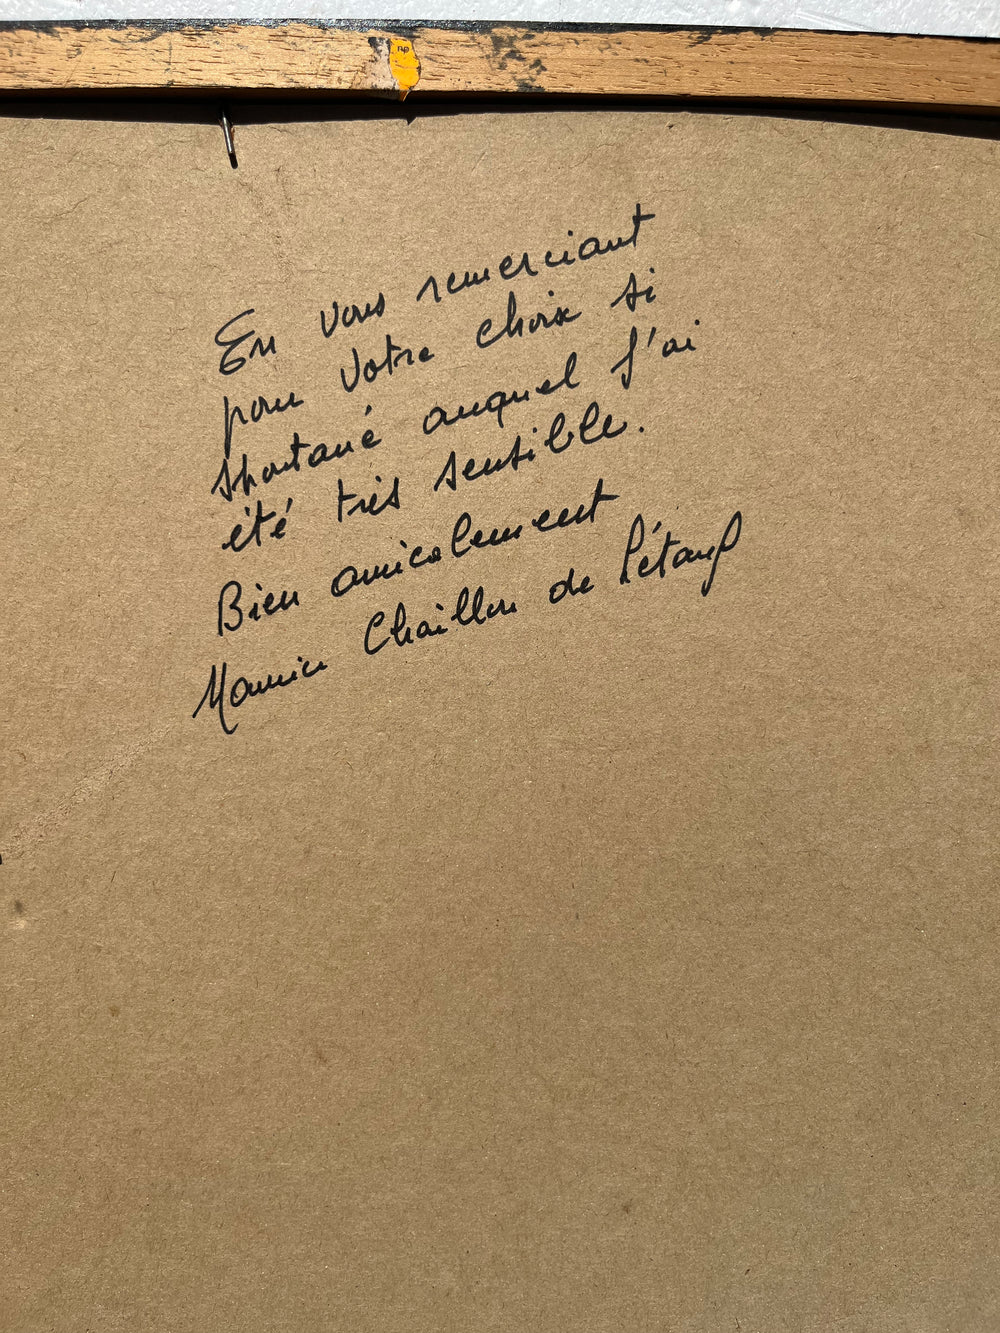 En vous remerciant
pour votre choix si
spontané auquel j'ai
été très sensible.
Bien amicalement
Maurice Chaillon de l'étang